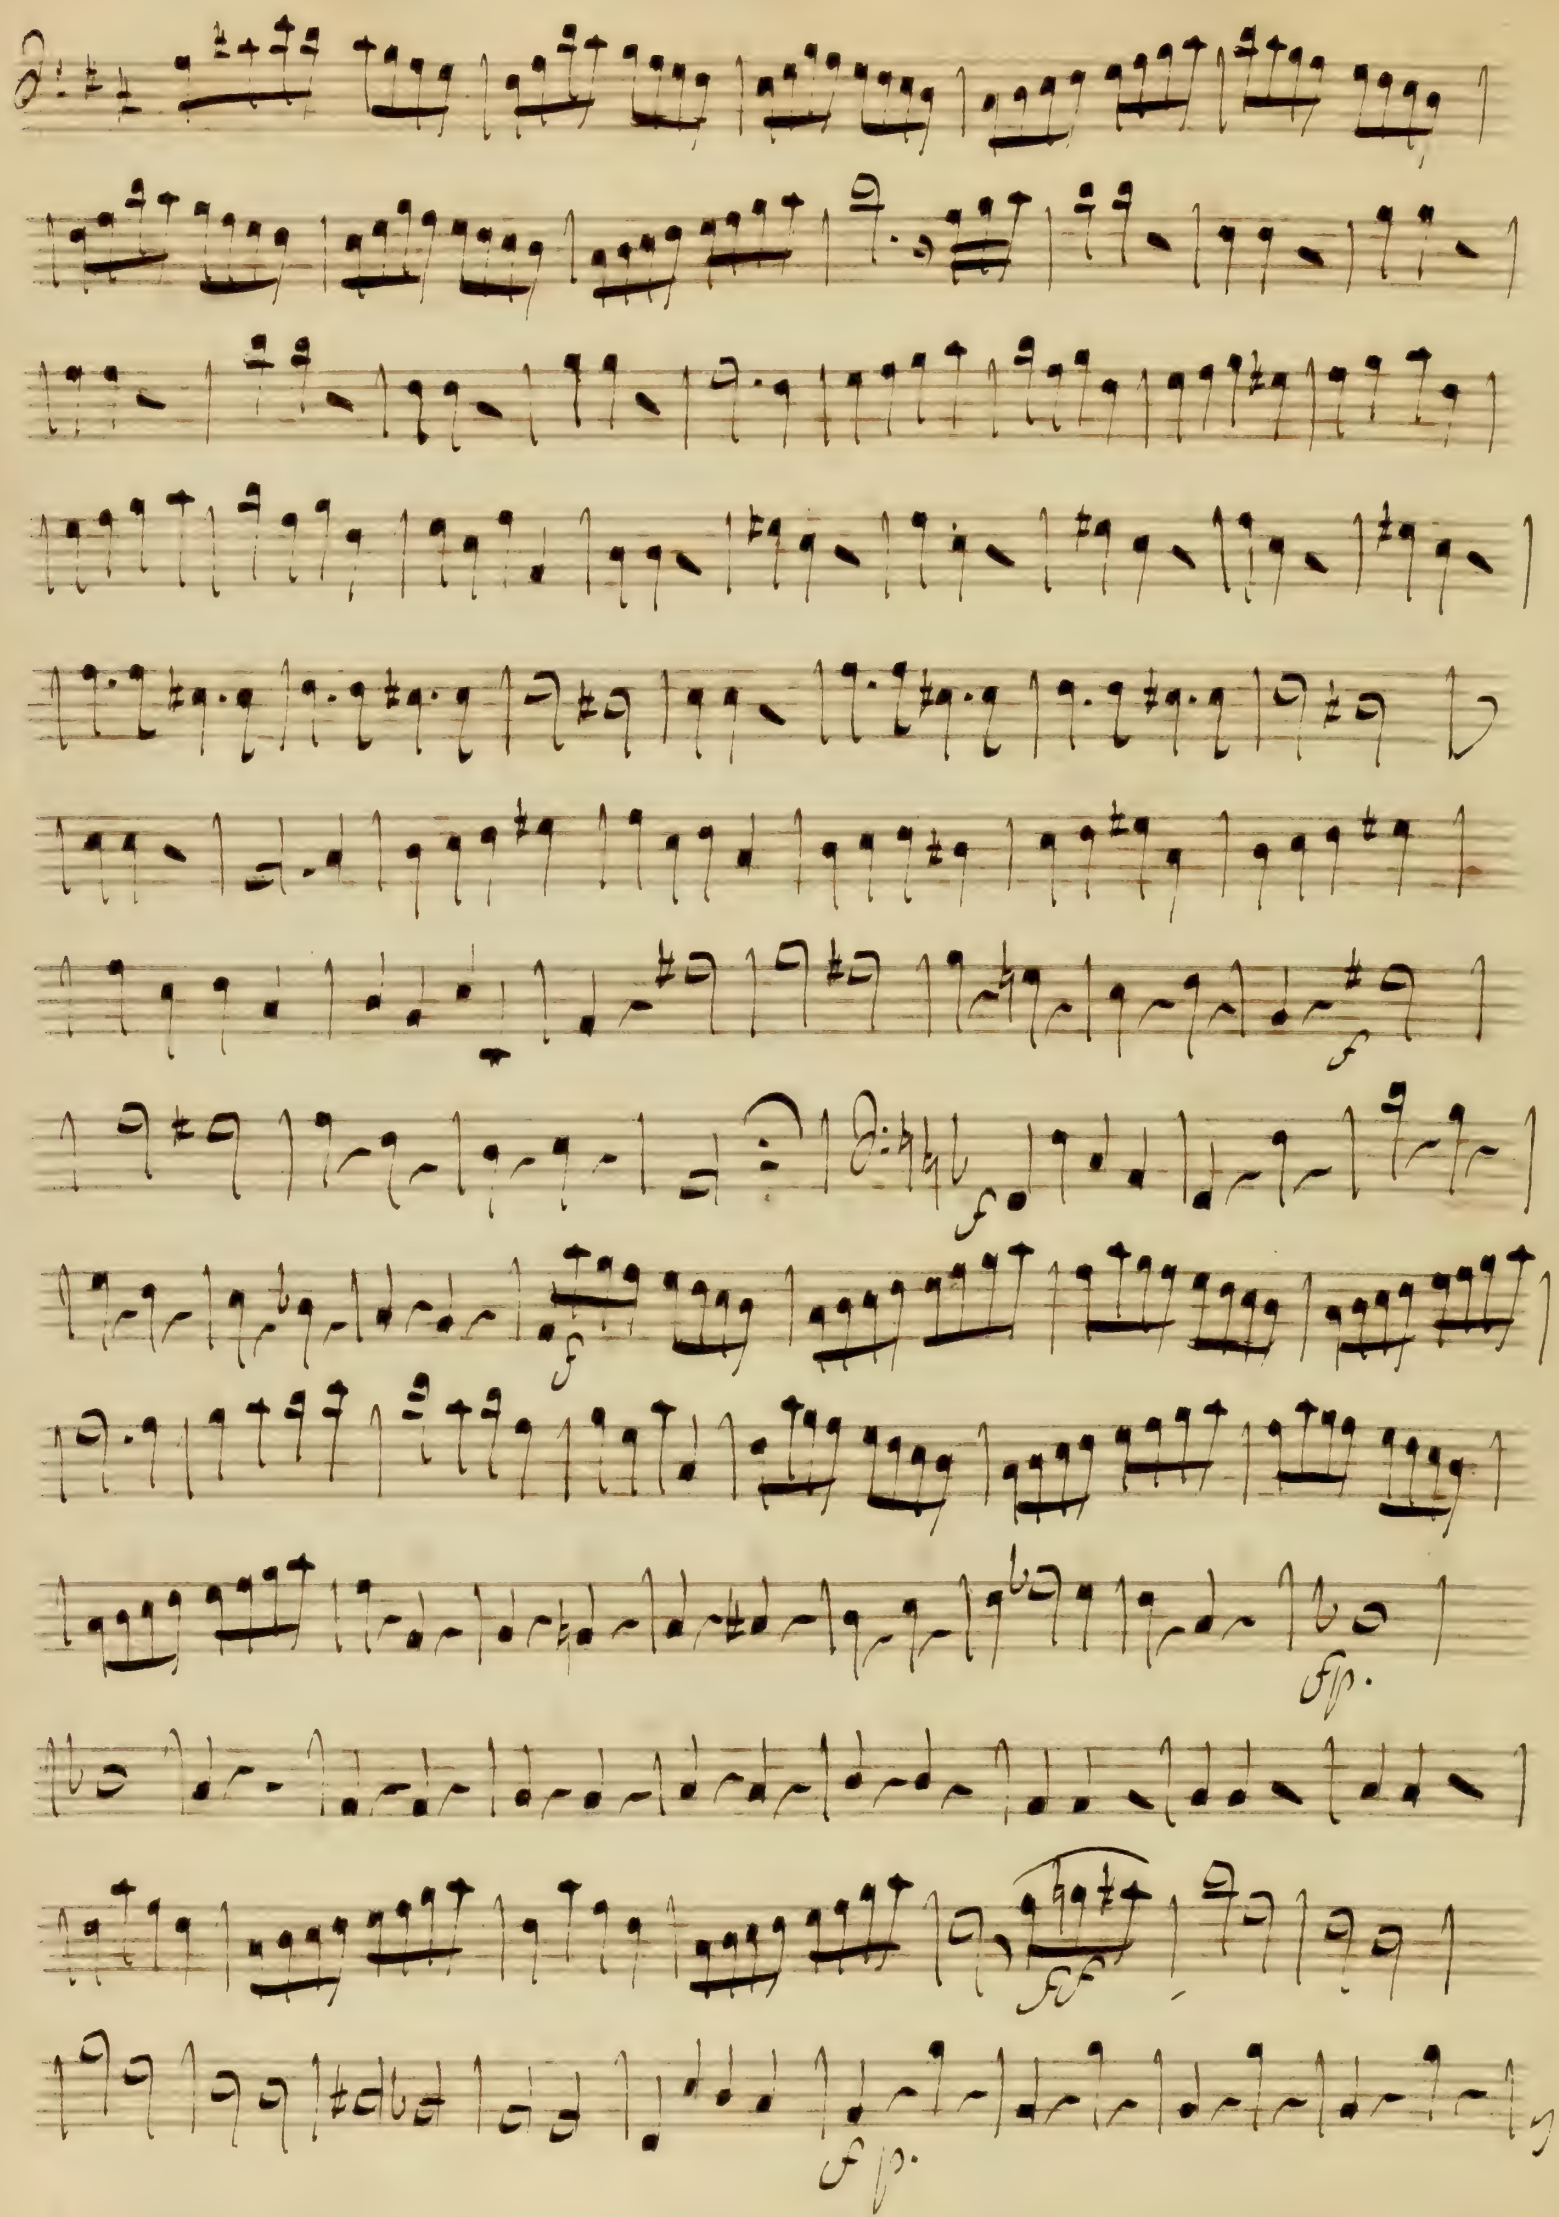 f
f
f
fp.
ff
f p.